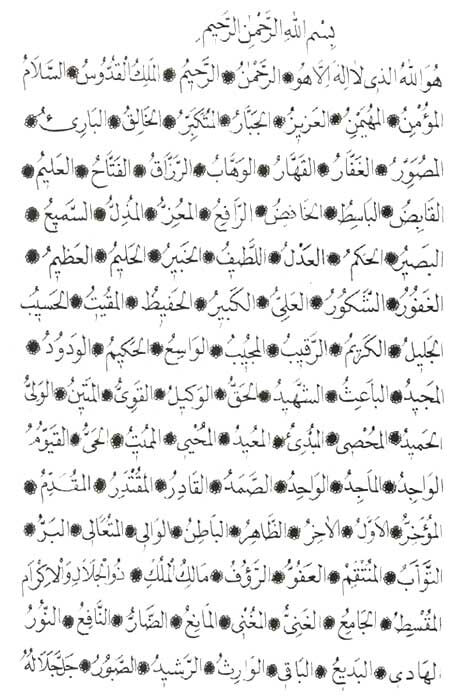 بِسْمِ اللهِ الرَّحْمٰنِ الرَّحِيمِ
هُوَ اللهُ الَّذِي لَا اِلٰهَ اِلَّا هُوَ ❁ الرَّحْمٰنُ ❁ الرَّحِيمُ ❁ المَلِكُ ❁ القُدُّوسُ ❁ السَّلَامُ
المُؤْمِنُ ❁ المُهَيْمِنُ ❁ العَزِيزُ ❁ الجَبَّارُ ❁ المُتَكَبِّرُ ❁ الخَالِقُ ❁ البَارِئُ ❁
المُصَوِّرُ ❁ الغَفَّارُ ❁ القَهَّارُ ❁ الوَهَّابُ ❁ الرَّزَّاقُ ❁ الفَتَّاحُ ❁ العَلِيمُ ❁
القَابِضُ ❁ البَاسِطُ ❁ الخَافِضُ ❁ الرَّافِعُ ❁ المُعِزُّ ❁ المُذِلُّ ❁ السَّمِيعُ ❁
البَصِيرُ ❁ الحَكَمُ ❁ العَدْلُ ❁ اللَّطِيفُ ❁ الخَبِيرُ ❁ الحَلِيمُ ❁ العَظِيمُ ❁
الغَفُورُ ❁ الشَّكُورُ ❁ العَلِيُّ ❁ الكَبِيرُ ❁ الحَفِيظُ ❁ المُقِيتُ ❁ الحَسِيبُ
الجَلِيلُ ❁ الكَرِيمُ ❁ الرَّقِيبُ ❁ المُجِيبُ ❁ الوَاسِعُ ❁ الحَكِيمُ ❁ الوَدُودُ ❁
المَجِيدُ ❁ البَاعِثُ ❁ الشَّهِيدُ ❁ الحَقُّ ❁ الوَكِيلُ ❁ القَوِيُّ ❁ المَتِينُ ❁ الوَلِيُّ
الحَمِيدُ ❁ المُحْصِي ❁ المُبْدِئُ ❁ المُعِيدُ ❁ المُحْيِي ❁ المُمِيتُ ❁ الحَيُّ ❁ القَيُّومُ
الوَاجِدُ ❁ المَاجِدُ ❁ الوَاحِدُ ❁ الصَّمَدُ ❁ القَادِرُ ❁ المُقْتَدِرُ ❁ المُقَدِّمُ ❁
المُؤَخِّرُ ❁ الاَوَّلُ ❁ الاٰخِرُ ❁ الظَّاهِرُ ❁ البَاطِنُ ❁ الوَالِي ❁ المُتَعَالِي ❁ البَرُّ ❁
التَّوَّابُ ❁ المُنْتَقِمُ ❁ العَفُوُّ ❁ الرَّؤُفُ ❁ مَالِكُ المُلْكِ ❁ ذُو الجَلَالِ وَالاِكْرَامِ
المُقْسِطُ ❁ الجَامِعُ ❁ الغَنِيُّ ❁ المُغْنِي ❁ المَانِعُ ❁ الضَّارُّ ❁ النَّافِعُ ❁ النُّورُ
الهَادِي ❁ البَدِيعُ ❁ البَاقِي ❁ الوَارِثُ ❁ الرَّشِيدُ ❁ الصَّبُورُ ❁ جَلَّ جَلَالُهُ